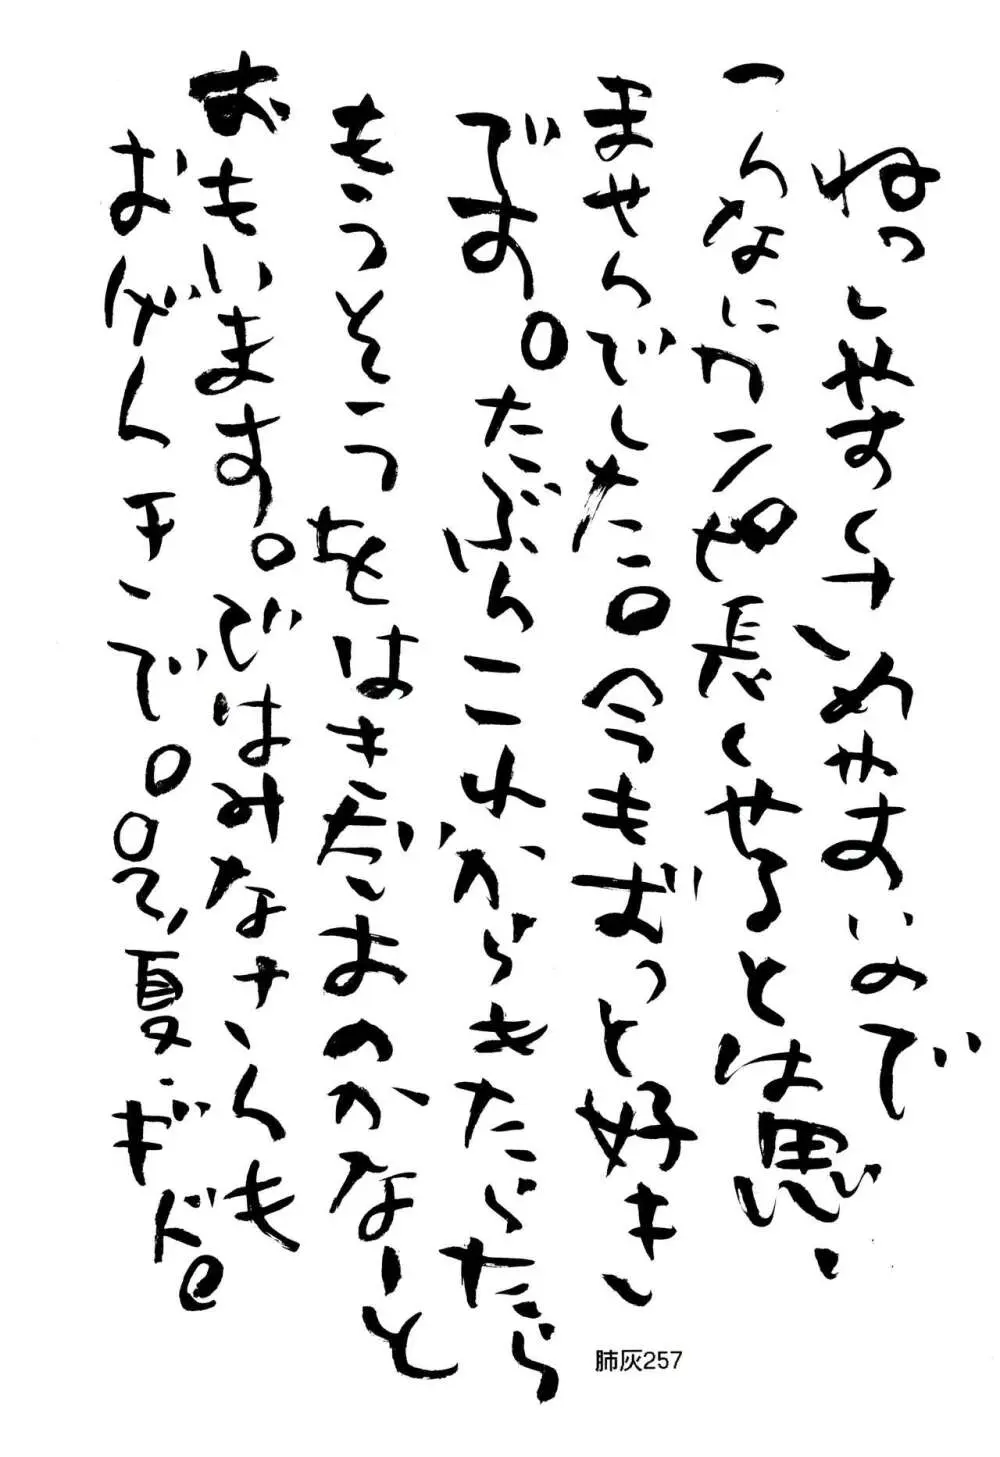 ねっしやすくさめやすいので
こんなにワンピ長くやるとは思い
ませんでした。今もずっと好き
です。たぶんこれからもたらたら
もうそうをはきだすのかなーと
おもいます。ではみなさんも
おげんきで。02,夏・ギド。
肺灰257